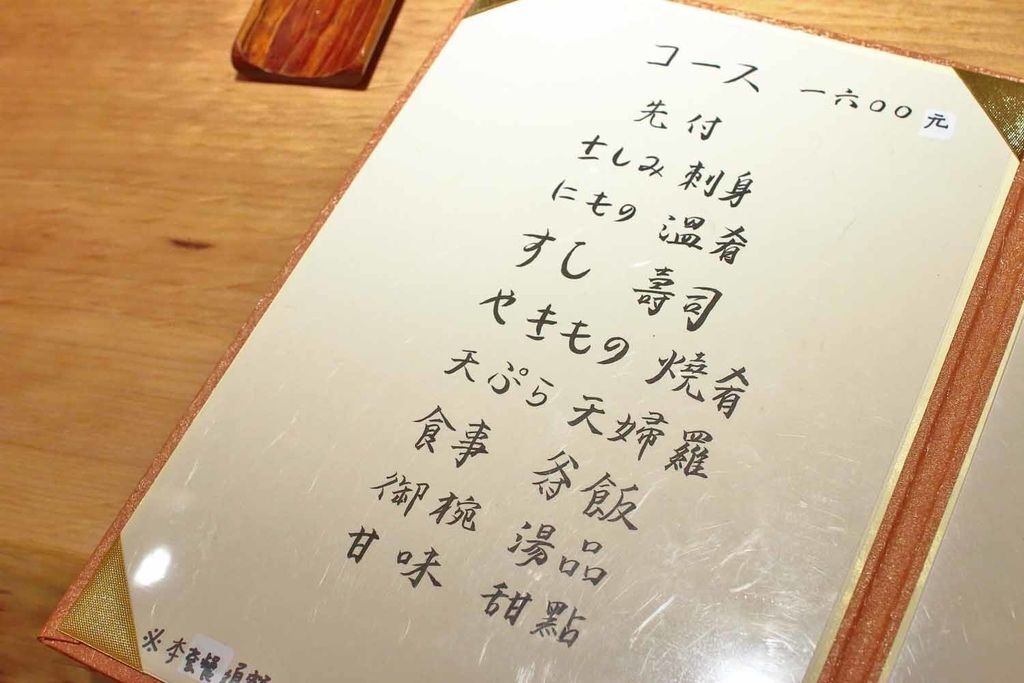 コース 一六〇〇元
先付
さしみ 刺身
にもの 溫肴
すし 壽司
やきもの 燒肴
天ぷら 天婦羅
食事 釜飯
御椀 湯品
甘味 甜點
※